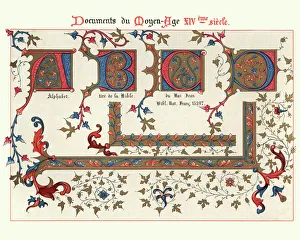 Documents du Moyen-Age XIV ième siècle.
A B C D
Alphabet tiré de la Bible du Roi Jean
Bibl. Nat. Franç. 15397.